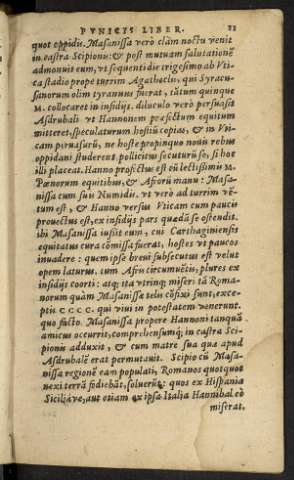 PVNICVS LIBER.
quot oppidis. Masanissa verò clàm noctu venit
in castra Scipionis: & post mutuam salutationẽ
admonuit eum, vt sequenti die
ca stadio prope turrim Agathoclis, qui Syracu-
sanorum olim tyrannus fuerat, tãtum quinque
M. collocaret in insidijs. diluculo verò persuasit
Asdrubali vt Hannonem præfectum equitum
mitteret, speculaturum hostiũ copias, & in Vti-
cam peruasurũ, ne hoste propinquo nouis rebus
oppidani studerent. pollicitus secuturũ se, si hoc
illi placeat. Hanno profectus est cũ lectissimis M.
Pœnorum equitibus, & Aforũ manu: Masa-
nissa cum suis Numidis. vt verò ad turrim vẽ-
tum est, & Hanno versus Vticam cum paucis
prouectus est, ex insidijs pars quædã se ostendit.
ibi Masanissa iussit eum, cui Carthaginiensis
equitatus cura cõmissa fuerat, hostes vt paucos
inuadere: quem ipse breui subsecutus est velut
opem laturus, tum Afris circumuẽtis, plures ex
insidijs coorti: atq; ita vtrinq; miseri tã Roma-
norum quàm Masanissæ telis cõfixi sunt, exce-
ptis CCCC. qui viui in potestatem venerunt.
quo facto. Masanissa propere Hannoni tanquã
amicus occurrit, comprehensumq; in castra Sci-
pionis adduxit, & cum matre sua quæ apud
Asdrubalẽ erat permutauit. Scipio cũ Masa-
nissa regionẽ eam populati, Romanos quotquot
nexi terrã fodiebãt, soluerũt: quos ex Hispania
Siciliáve, aut etiam ex ipsa Italia Hannibal eò
miserat.